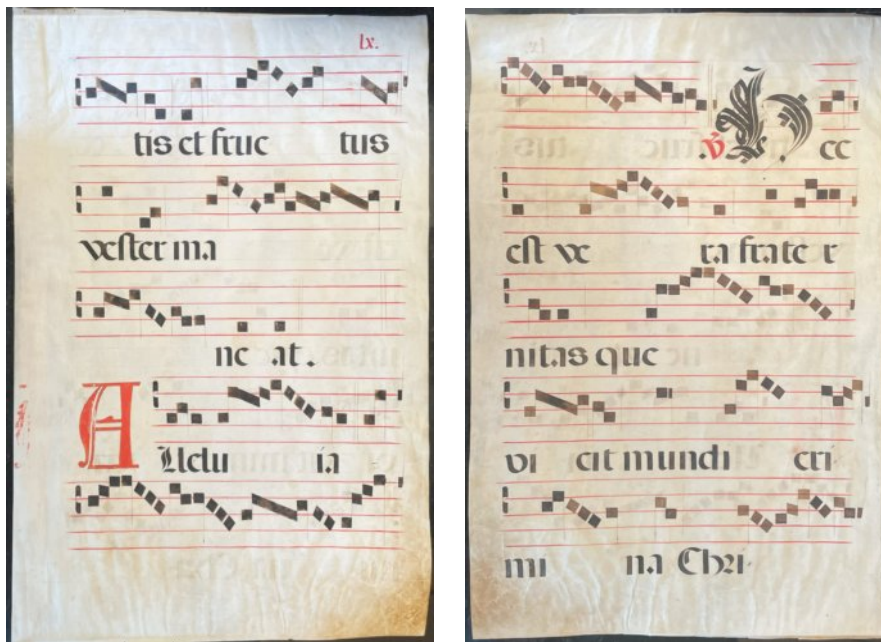 lx.
tis et fruc tus
vester ma
ne at.
Allelu ia
℣. Hec
est ve ra frater
nitas que
vi cit mundi cri
mi na Chri